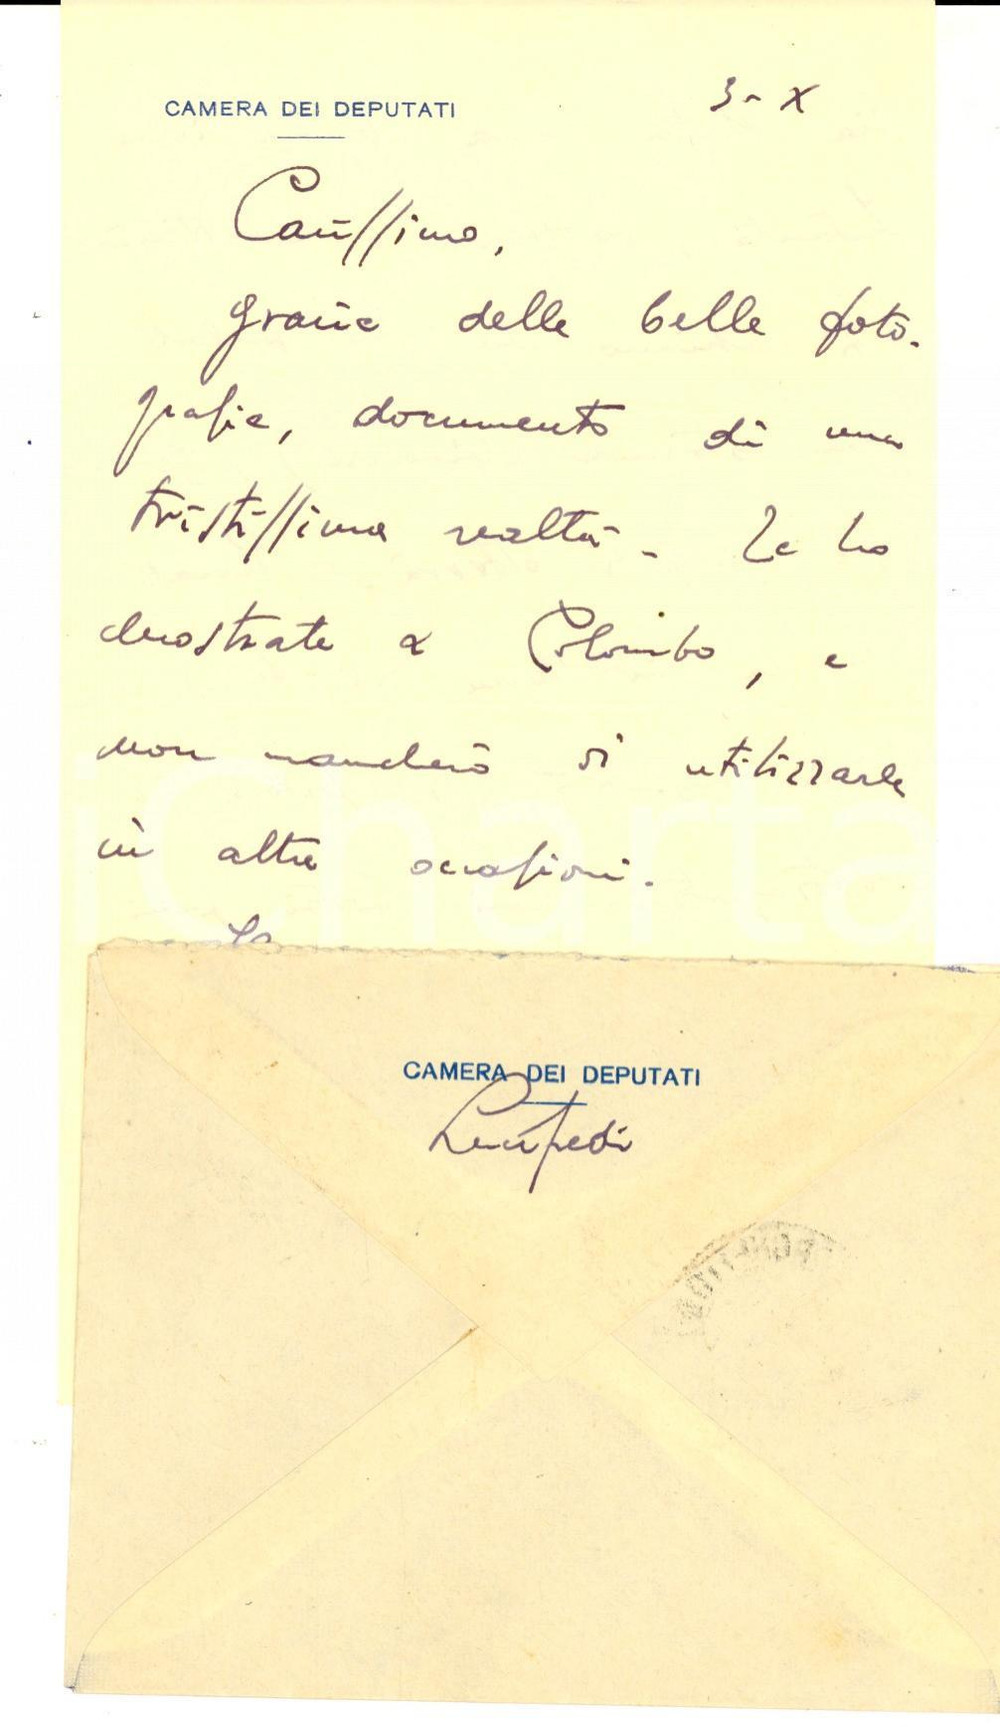 CAMERA DEI DEPUTATI
3 - X
Carissimo,
grazie delle belle foto-
grafie, documento di una
tristissima realtà - Le ho
mostrate a Colombo, e
non mancherò di utilizzarle
in altre occasioni.
CAMERA DEI DEPUTATI
iCharta